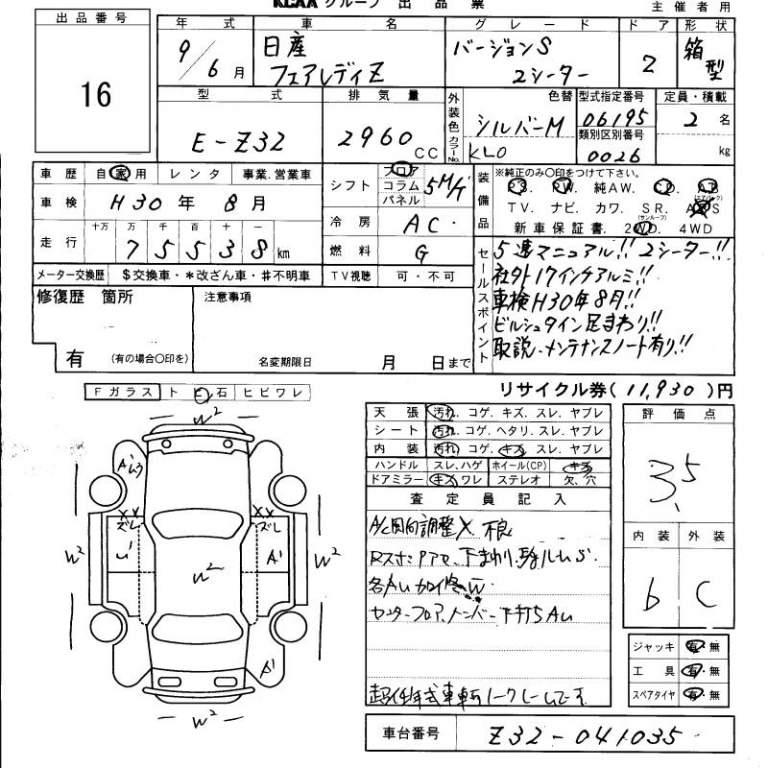 KCAA グループ 出品票
主催者用
出品番号
16
年式 車名 グレード ドア 形状
9/6月 日産 フェアレディZ バージョンS 2シーター 2 箱型
型式 排気量 外装色 カラーNo. 色替 型式指定番号 定員・積載
E-Z32 2960CC シルバーM KL0 06195 2名
類別区別番号
0026 kg
車歴 自家用 レンタ 事業.営業車
車検 H30年 8月
走行 十万 万 千 百 十 一
75538km
メーター交換歴 $交換車・*改ざん車・#不明車
シフト フロア コラム パネル 5M/T
冷房 AC
燃料 G
TV視聴 可・不可
装備品 ※純正のみ〇印をつけて下さい。
PS. PW. 純AW. CD. AB
TV. ナビ. カワ. SR. A/S
(サンルーフ)
新車保証書. 2WD. 4WD
セールスポイント
5速マニュアル!! 2シーター!!
社外17インチアルミ!!
車検H30年8月!!
ビルシュタイン足まわり!!
取説、メンテナンスノート有り!!
修復歴 箇所 注意事項
有 (有の場合〇印を) 名変期限日 月 日まで
リサイクル券(11,930)円
Fガラス ト ビ 石 ヒビワレ
天張 汚れ. コゲ. キズ. スレ. ヤブレ
シート 汚れ. コゲ. ヘタリ. スレ. ヤブレ
内装 汚れ. コゲ. キズ. スレ. ヤブレ
ハンドル スレ.ハゲ ホイール(CP) キズ
ドアミラー キズ ワレ ステレオ 欠.穴
査定員記入
A/C風向調整X 不良
各AU
センターフロア、メンバー下打5 AU
評価点
3.5
内装 外装
b C
ジャッキ 有・無
工具 有・無
スペアタイヤ 有・無
W2
A'
ムラ
XX XX
ズレ ズレ
W2 U' W2 A' W2
A'
W2
車台番号 Z32-041035